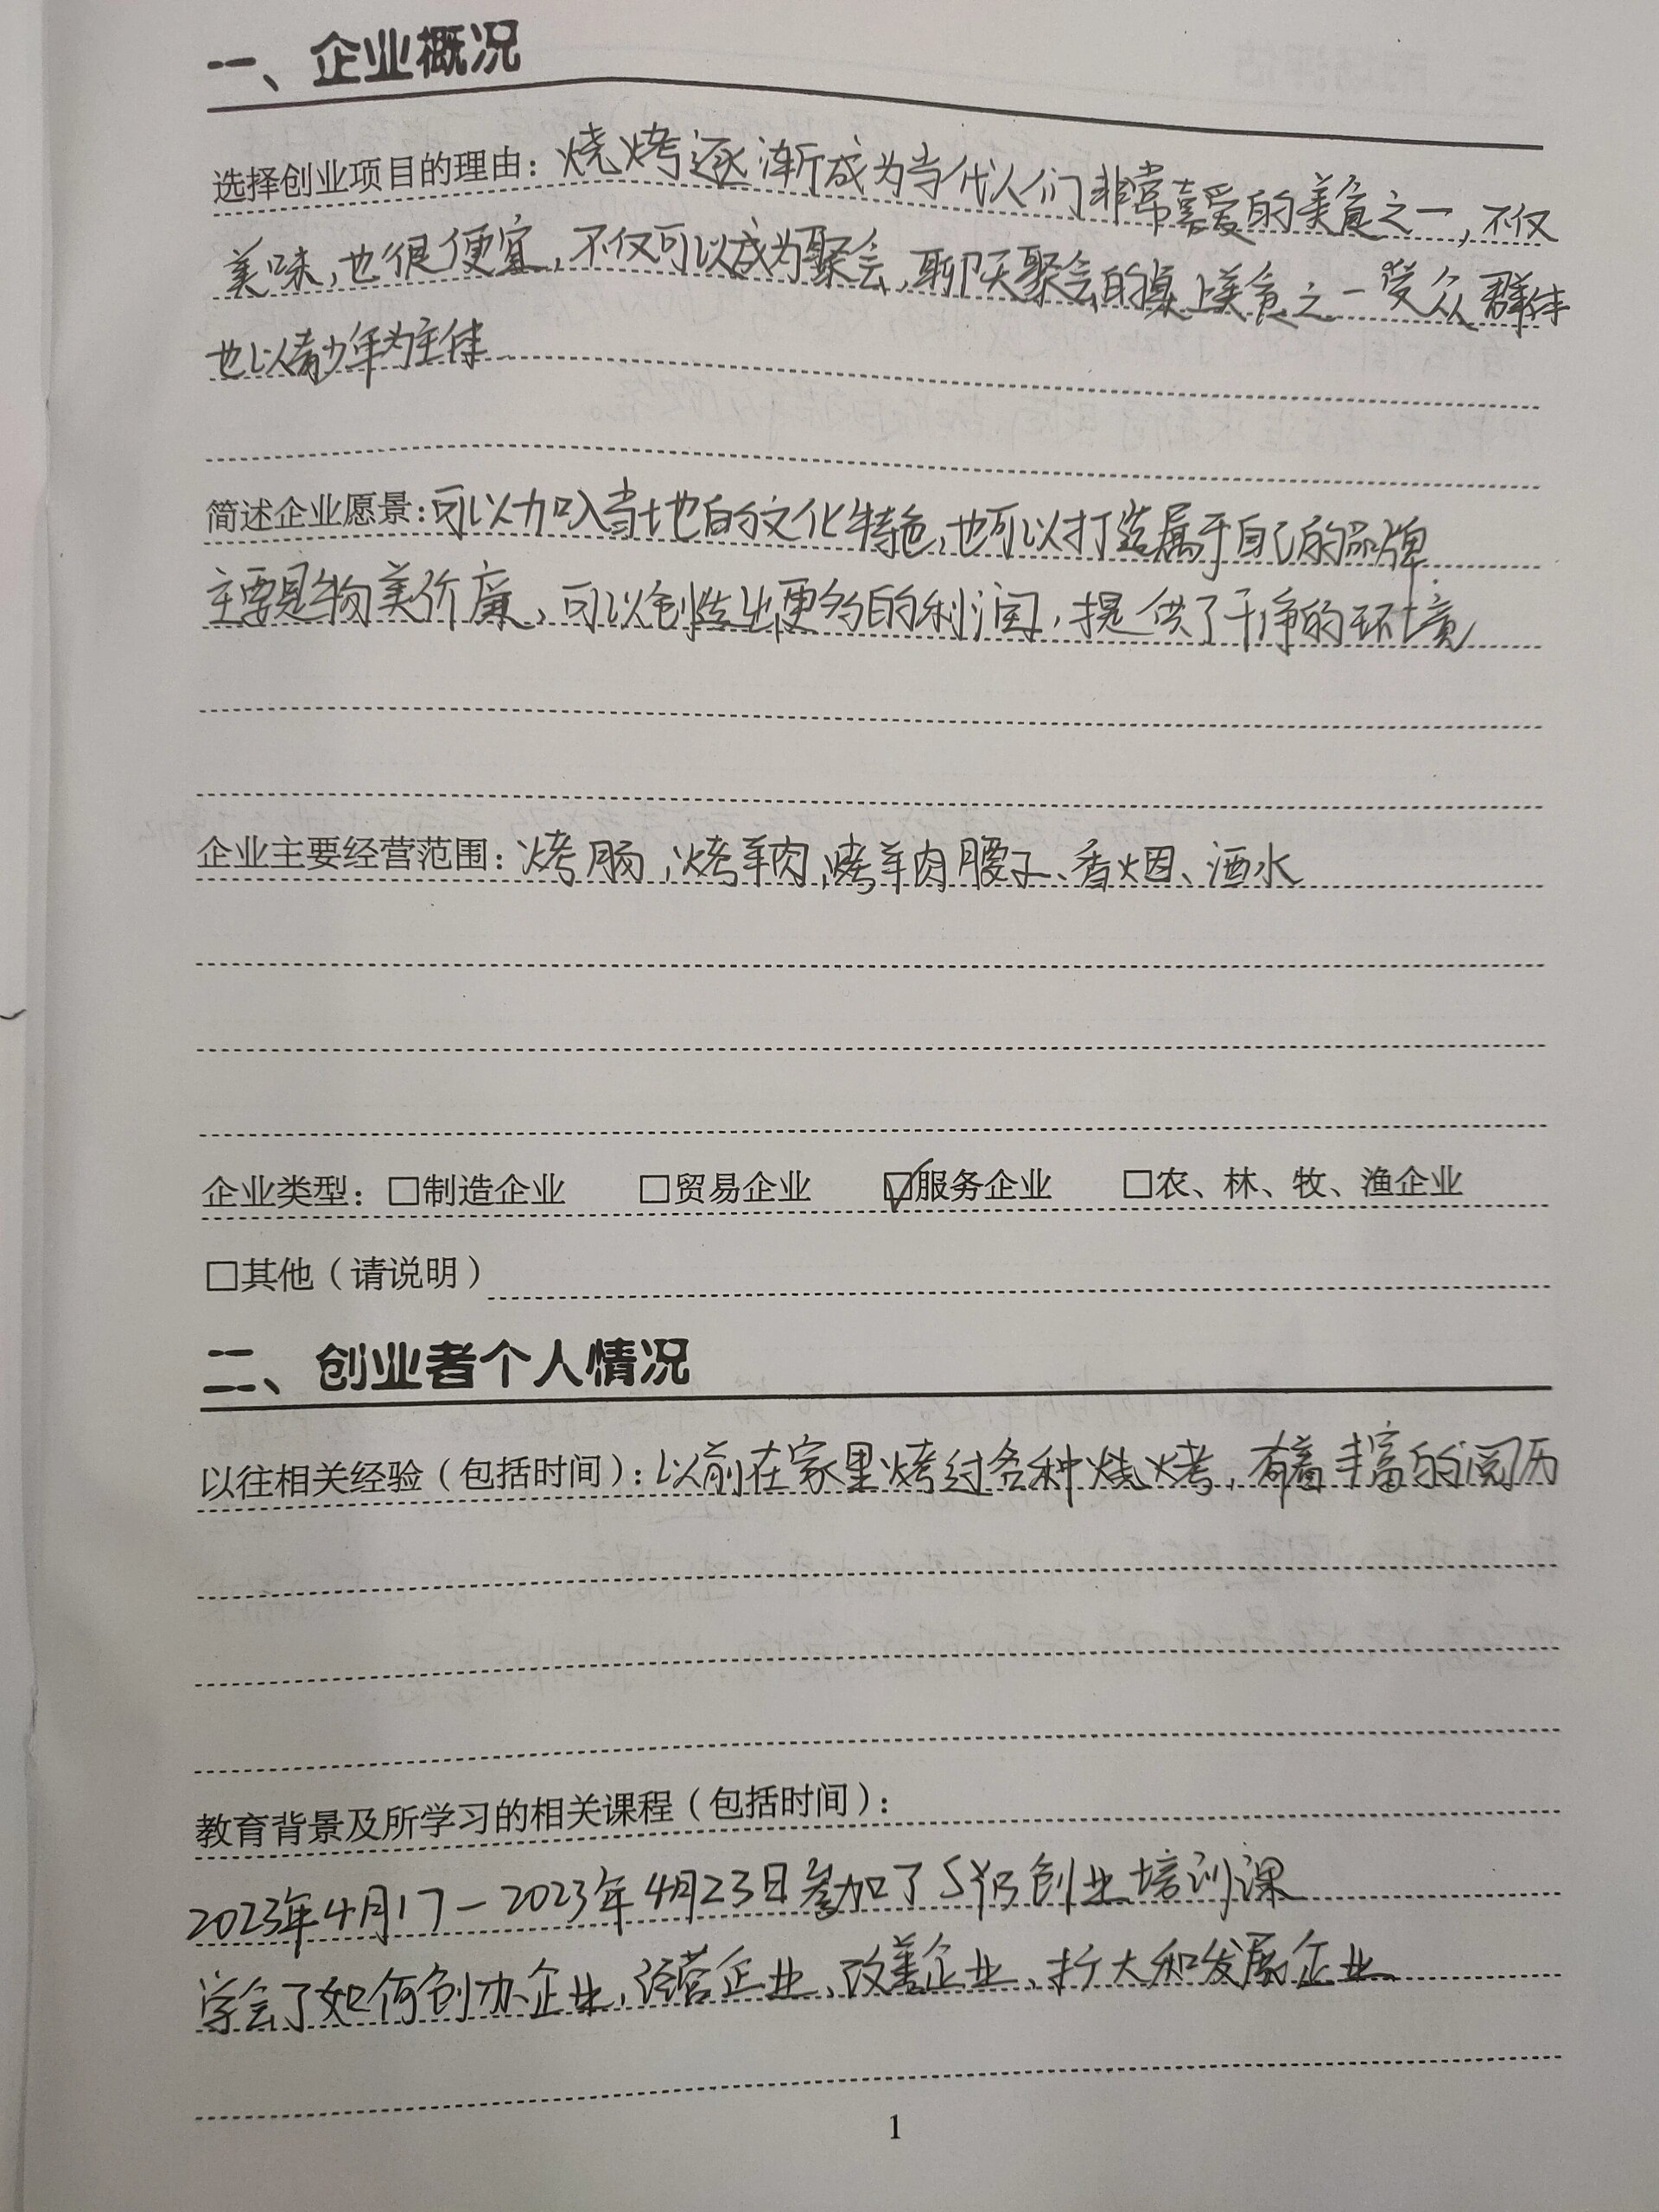 一、企业概况
选择创业项目的理由：烧烤逐渐成为当代人们非常喜爱的美食之一，不仅
美味，也很便宜，不仅可以成为聚会，聊天聚会的桌上美食之一受众群体
也以青少年为主体
简述企业愿景：可以加入当地的文化特色，也可以打造属于自己的品牌
主要是物美价廉，可以创造出更多的利润，提供了干净的环境
企业主要经营范围：烤肠，烤羊肉，烤羊肉腰子、香烟、酒水
企业类型：□制造企业 □贸易企业 ☑服务企业 □农、林、牧、渔企业
□其他（请说明）
二、创业者个人情况
以往相关经验（包括时间）：以前在家里烤过各种烧烤，有着丰富的阅历
教育背景及所学习的相关课程（包括时间）：
2023年4月17－2023年4月23日参加了SYB创业培训课
学会了如何创办企业，经营企业、改善企业、扩大和发展企业
1